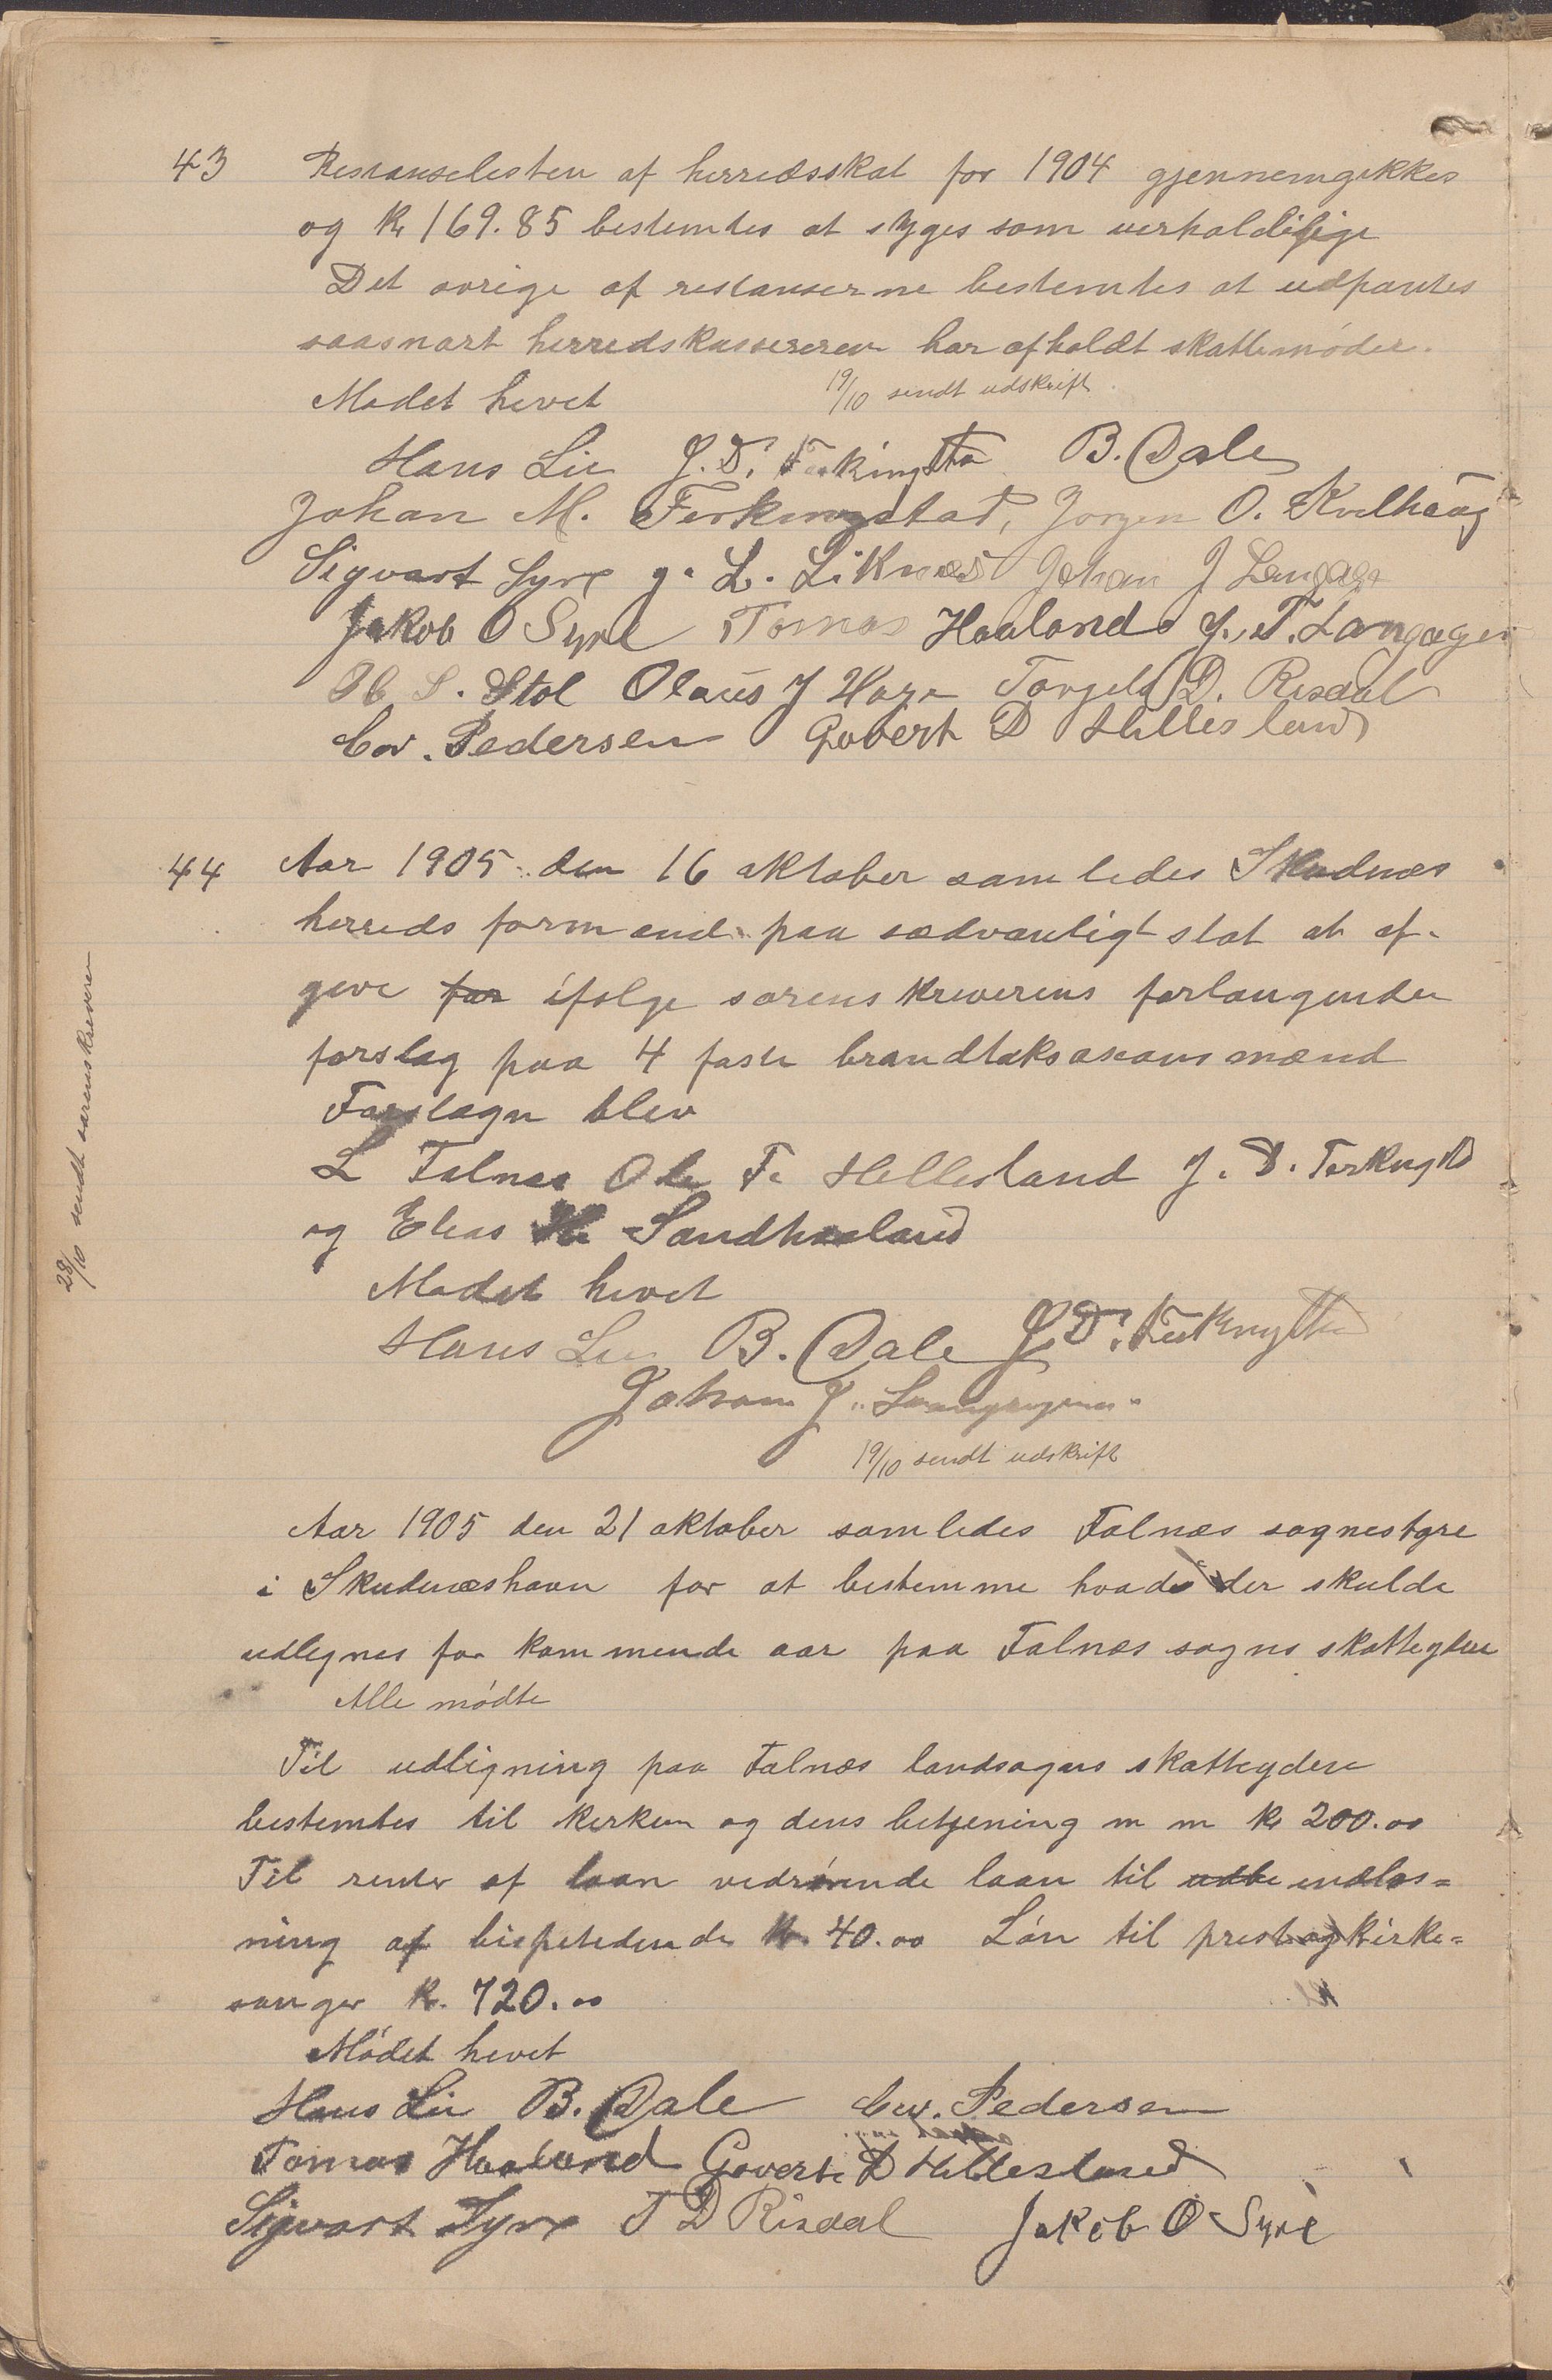 43 Restanselisten af herredsskat for 1904 gjennemgikkes
og kr 169.85 bestemtes at slyges som uerholdelige
Det øvrige af restanserne bestemtes at udpantes
saasnart herredskassereren har afholdt skattemøder.
Mødet hevet 19/10 sendt udskrift.
Hans Lie J. D. Ferkingsta B. Dale
Johan M. Ferkingstad, Jørgen O. Kvilhaug
Sigvart Syre g. L. Liknes Johan J Langåge
Jakob O Syre Tomas Haaland J. T. Langager
Ole S. Stol Olaus J Hage Torgels D. Risdal
Cor. Pedersen Govert D Hillesland
44 Aar 1905 den 16 oktober samledes Skudnæs
herreds formænd paa sædvanligt stot at af-
give for ifølge sorenskriverens forlangende
forslag paa 4 faste brandtaksasionsmænd
Forslagn blev
L Falnes Ole F. Hillesland J. D. Ferkingstd
og Elias H. Sandhaaland
Mødet hevet
Hans Lie B. Dale J. D. Ferkingstad
Johan J. Langaager
19/10 sendt udskrift
28/10 sendt sorenskriveren
Aar 1905 den 21 oktober samledes Falnæs sognestyre
i Skudenæshavn for at bestemme hvad der skulde
udlignes for kommende aar paa Falnæs sogns skatteydere
Alle mødte
Til udligning paa Falnæs landsogns skatteydere
bestemtes til kirken og dens betjening m m kr 200.00
Til renter af laan vedrørende laan til udbe indløs=
ning af bispetiende kr. 40.00 Løn til prest og kirke=
sanger kr. 720.00
Mødet hevet
Hans Lie B. Dale Cor. Pedersen
Tomas Haaland Govert D Hillesland
Sigvart Syre T D Risdal Jakob O Syre